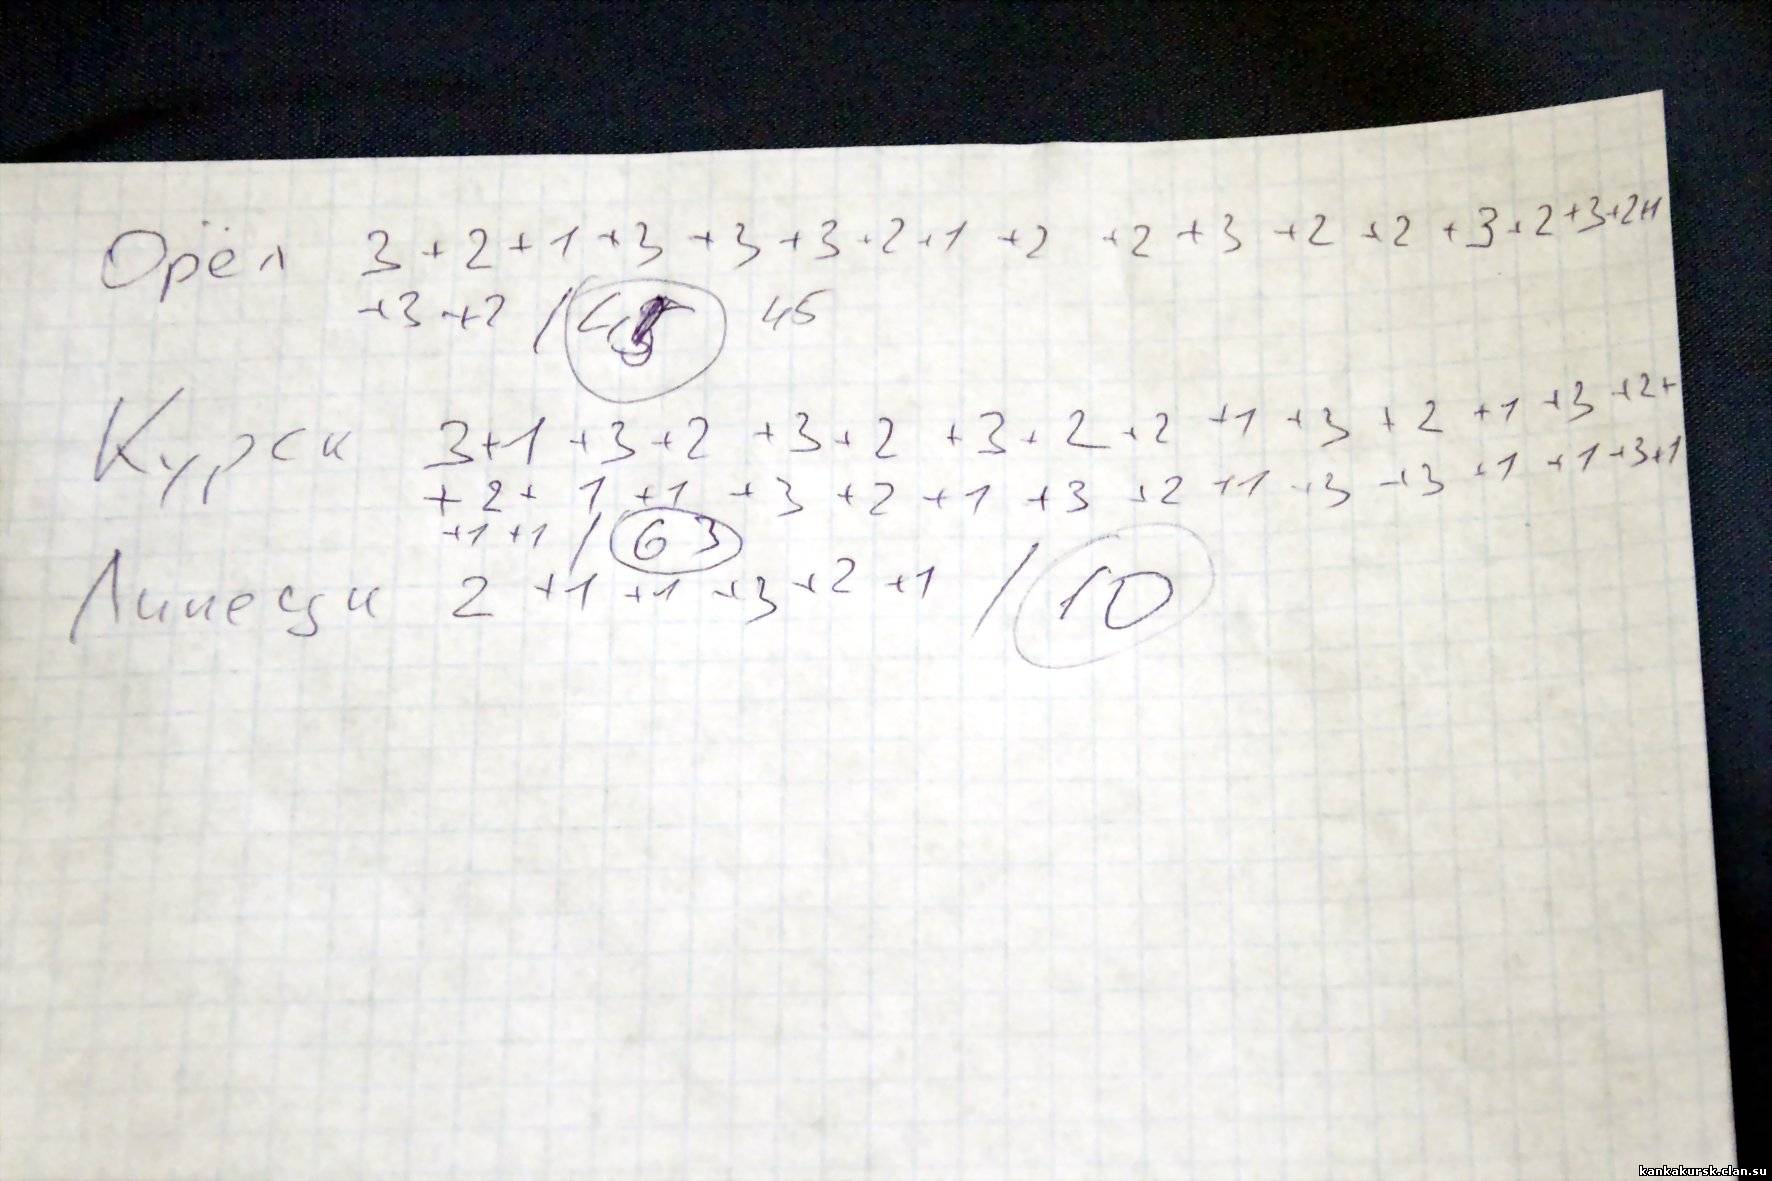 Орёл 3+2+1+3+3+3+2+1+2+2+3+2+2+3+2+3+2+1
+3+2 / 45
Курск 3+1+3+2+3+2+3+2+2+1+3+2+1+3+2+
+2+1+1+3+2+1+3+2+1+3+3+1+1+3+1
+1+1 / 63
Липецк 2+1+1+3+2+1 / 10
kankakursk.clan.su